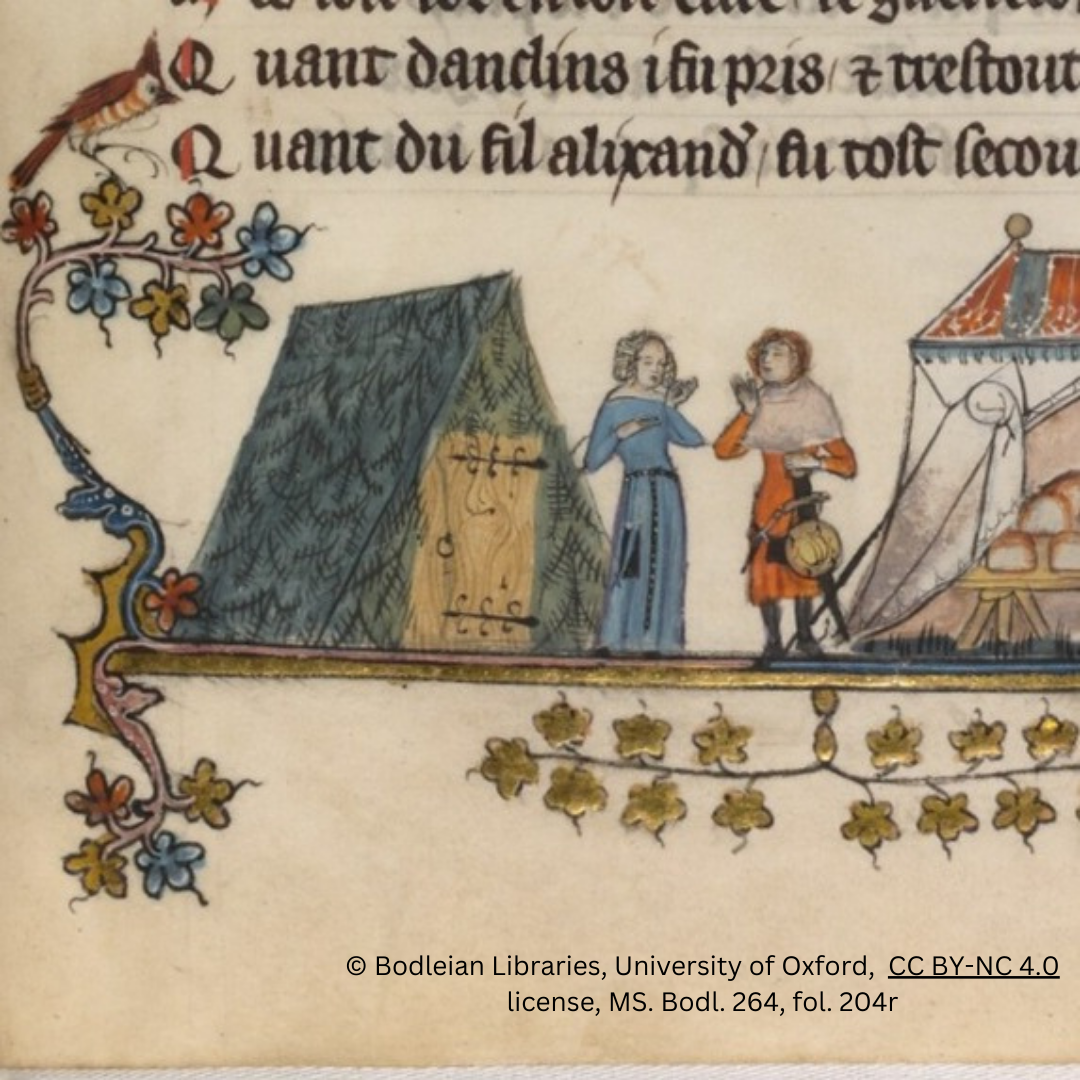 Quant danclins i fu pris / ⁊ trestout
Quant du fil alixand' / fu tost secou
© Bodleian Libraries, University of Oxford, CC BY-NC 4.0
license, MS. Bodl. 264, fol. 204r